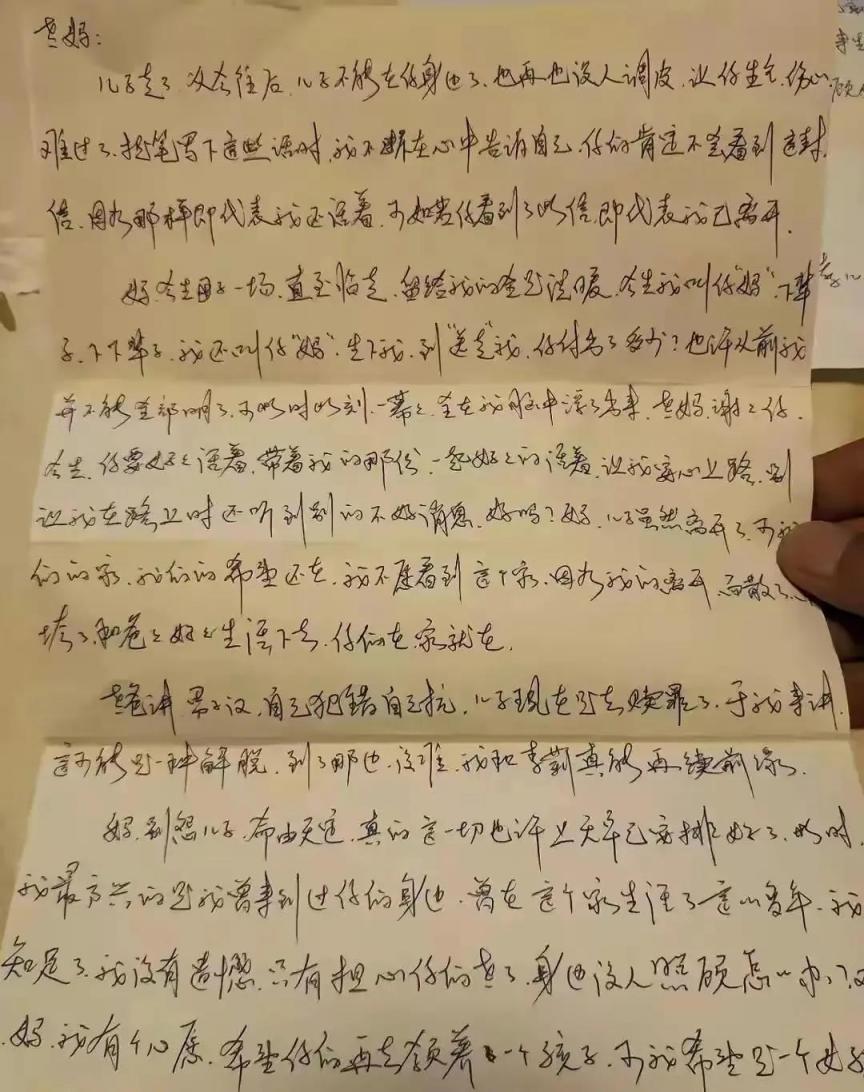 老妈：
儿子走了，从今往后，儿子不能在你身边了，也再也没人调皮，让你生气，伤心，
难过了，提笔写下这些话时，我不断在心中告诉自己，你们肯定不会看到这封
信，因为那样即代表我还活着，可如若你看到了此信，即代表我已离开。
妈，今生母子一场，直至临走，留给我的全是温暖，今生我叫你"妈"，下辈
子，下下辈子，我还叫你"妈"，生下我，到"送走"我，你付出了多少？也许从前我
并不能全部明了，可此时此刻，一幕幕，全在我脑中浮了出来，老妈，谢谢你，
今生，你要好好活着，带着我的那份，一起好好的活着，让我安心上路，别
让我在路上时还听到别的不好消息，好吗？妈，儿子虽然离开了，可我
们的家，我们的希望还在，我不愿看到这个家，因为我的离开，而散了，
垮了，和爸爸好好生活下去，你们在，家就在。
老爸讲男子汉，自己犯错自己扛，儿子现在是去赎罪了，于我来讲，
这可能是一种解脱，到了那边，没准，我和李蓟真能再续前缘。
妈，别怨儿子，命由天定，真的这一切也许上天早已安排好了，此时，
我最高兴的是我曾来到过你们的身边，曾在这个家生活了这么多年，我
知足了，我没有遗憾，只有担心你们老了，身边没人照顾怎么办，
妈，我有个心愿，希望你们再去领养一个孩子，可我希望是一个女孩